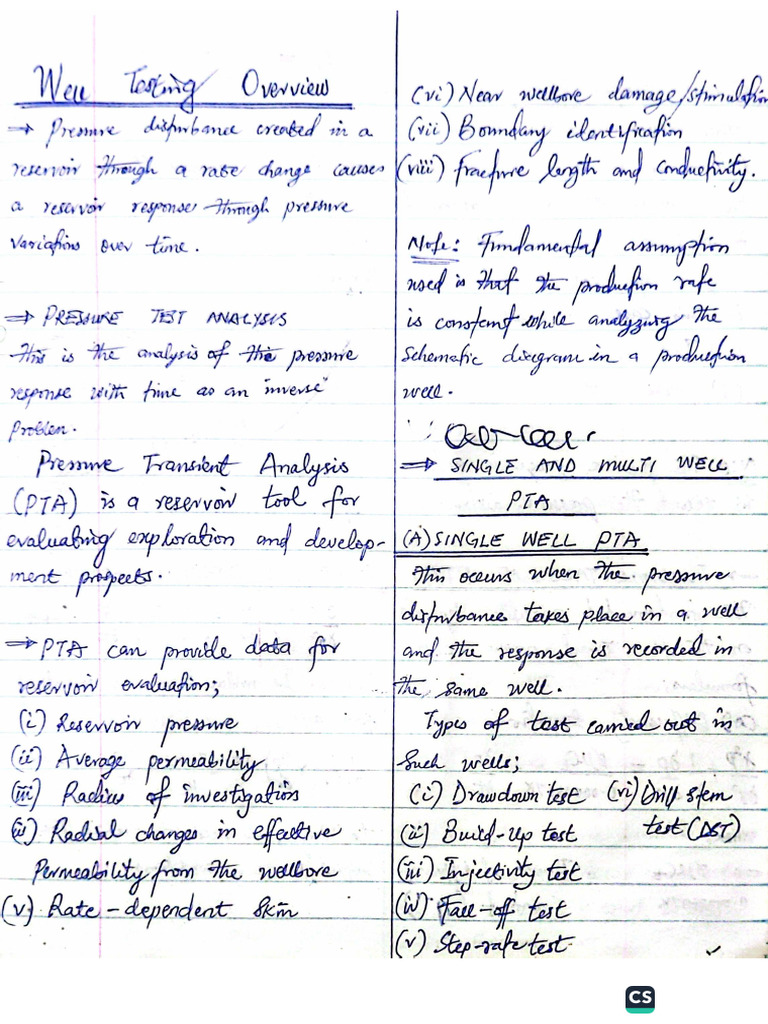 Well Testing Overview
⇒ Pressure disturbance created in a
reservoir through a rate change causes
a reservoir response through pressure
variations over time.
⇒ PRESSURE TEST ANALYSIS
This is the analysis of the pressure
response with time as an "inverse"
problem.
Pressure Transient Analysis
(PTA) is a reservoir tool for
evaluating exploration and develop-
ment prospects.
⇒ PTA can provide data for
reservoir evaluation;
(i) Reservoir pressure
(ii) Average permeability
(iii) Radius of investigation
(iv) Radial changes in effective
Permeability from the wellbore
(v) Rate-dependent skin
(vi) Near wellbore damage/stimulation
(vii) Boundary identification
(viii) Fracture length and conductivity.
Note: Fundamental assumption
used is that the production rate
is constant while analyzing the
schematic diagram in a production
well.
⇒ SINGLE AND MULTI WELL
PTA
(A) SINGLE WELL PTA
This occurs when the pressure
disturbance takes place in a well
and the response is recorded in
the same well.
Types of test carried out in
such wells;
(i) Drawdown test (vi) Drill stem
test (DST)
(ii) Build-Up test
(iii) Injectivity test
(iv) Fall-off test
(v) Step-rate test
CS